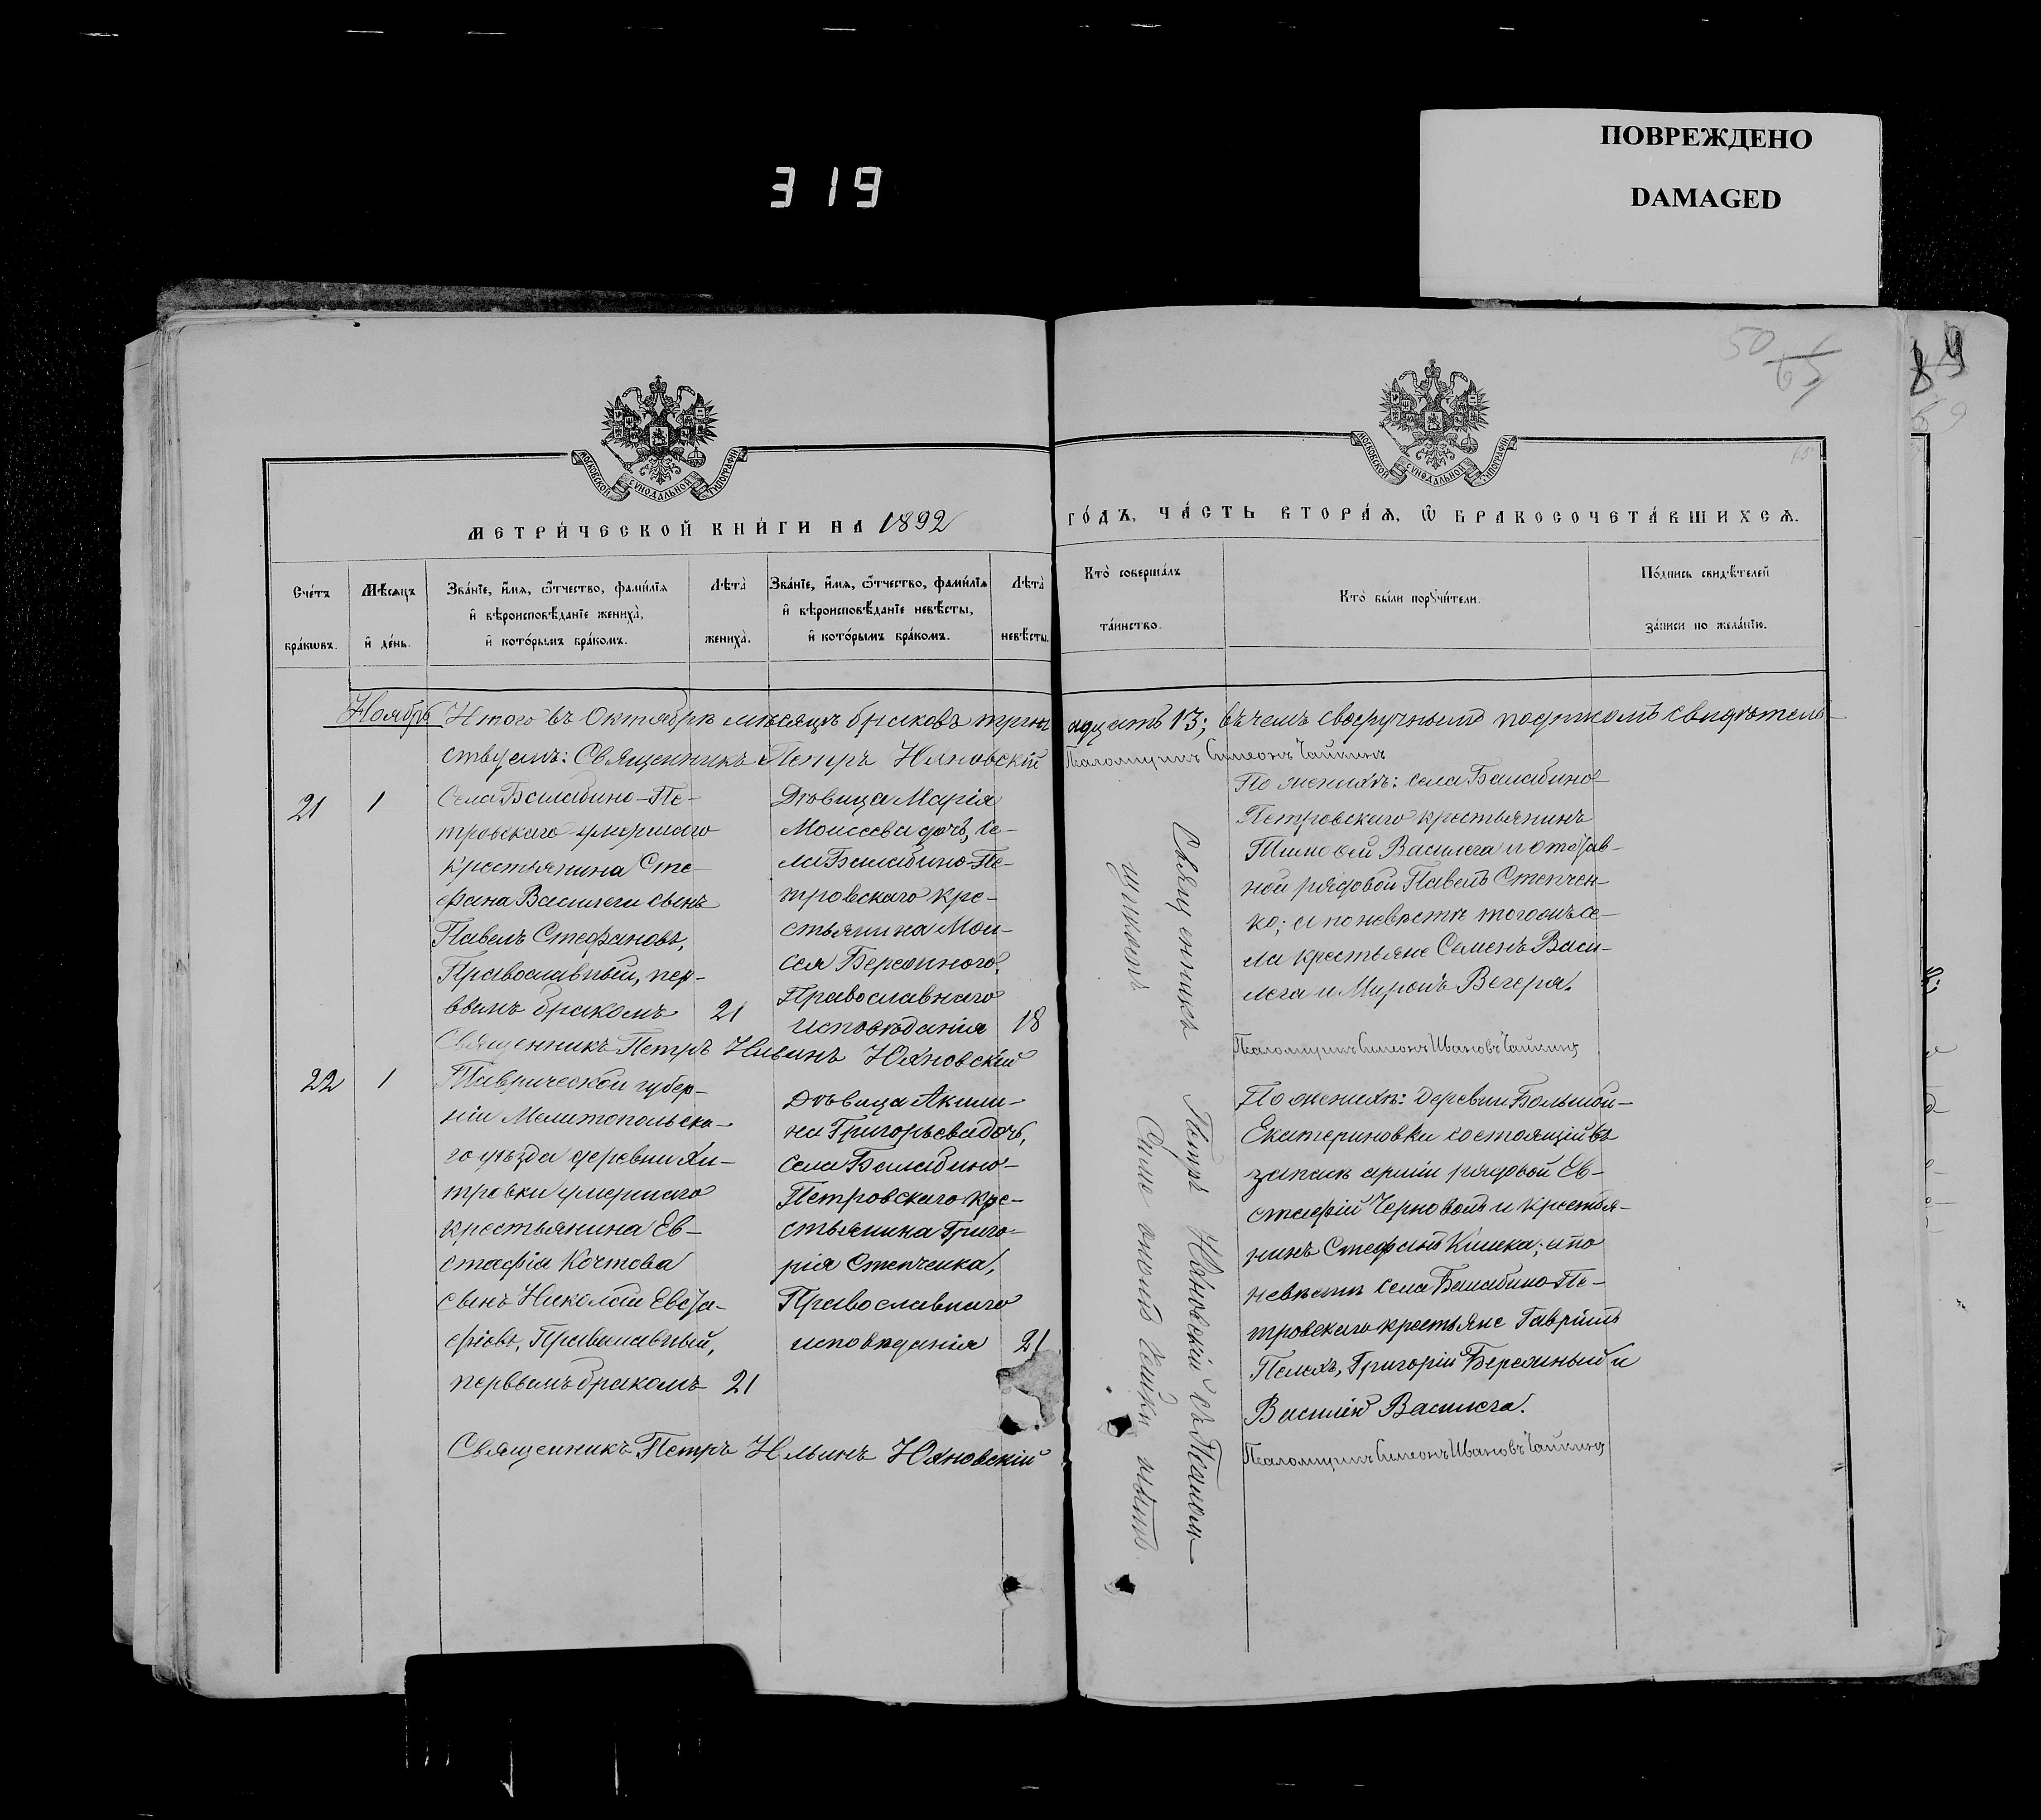 319
ПОВРЕЖДЕНО
DAMAGED
50
65
89
69
МОСКОВСКОЙ СУНОДАЛЬНОЙ ТИПОГРАФІИ
МОСКОВСКОЙ СУНОДАЛЬНОЙ ТИПОГРАФІИ
МЕТРИ́ЧЕСКОЙ КНИ́ГИ НА 1892
ГО́ДЪ, ЧА́СТЬ ВТОРА́Ѧ, Ѽ БРАКОСОЧЕТА́ВШИХСѦ.
Сче́тъ бра́кѡвъ.
Мѣ́сѧцъ и҆ де́нь.
Зва́нїе, и҆́мѧ, ѻ҆́тчество, фами́лїѧ
и҆ вѣроисповѣ́данїе жениха̀,
и҆ кото́рымъ бра́комъ.
Лѣта̀ жениха̀.
Зва́нїе, и҆́мѧ, ѻ҆́тчество, фами́лїѧ
и҆ вѣроисповѣ́данїе невѣ́сты,
и҆ кото́рымъ бра́комъ.
Лѣта̀ невѣ́сты.
Кто̀ соверша́лъ та́инство.
Кто̀ бы́ли порꙋчи́тели.
По́дпись свидѣ́телей за́писи по жела́нїю.
Ноябрь
Итого въ Октябрѣ мѣсяцѣ браковъ тринадцать 13; въ чемъ своеручнымъ подписомъ свидѣтель-
ствуемъ: Священникъ Петръ Нановскій Псаломщикъ Симеонъ Чайкинъ
21
1
Села Балабино-Пе-
тровскаго умершаго
крестьянина Сте-
фана Василеги сынъ
Павелъ Стефановъ,
Православный, пер-
вымъ бракомъ
21
Дѣвица Марія
Моисеева дочь, Се-
ла Балабино-Пе-
тровскаго кре-
стьянина Мои-
сея Бережного,
Православнаго
исповѣданія
18
По женихѣ: села Балабино-
Петровскаго крестьянинъ
Тимофей Василега и отстав-
ной рядовой Павелъ Степчен-
ко; а по невѣстѣ тогожъ се-
ла крестьяне Семенъ Васи-
лега и Миронъ Вегера.
Священникъ Петръ Ильинъ Нановскій
Псаломщикъ Симеонъ Ивановъ Чайкинъ
22
1
Таврической губер-
ніи Мелитопольска-
го уѣзда деревни
умершаго
крестьянина Ев-
стафія
сынъ Николай Евста-
фіевъ, Православный,
первымъ бракомъ
21
Дѣвица Акили-
на Григорьева дочь,
Села Балабино-
Петровскаго кре-
стьянина Григо-
рія Степченка,
Православнаго
исповѣданія
21
По женихѣ: деревни Большой-
Екатериновки состоящій въ
запасѣ арміи рядовой Ев-
стафій Черноволъ и крестья-
нинъ Стефанъ Кишка; а по
невѣстѣ села Балабино-Пе-
тровскаго крестьяне Гавріилъ
Пелехъ, Григорій Бережный и
Василій Василега.
Священникъ Петръ Ильинъ Нановскій
Псаломщикъ Симеонъ Ивановъ Чайкинъ
Священникъ Петръ Нановскій съ Псалом-
щикомъ